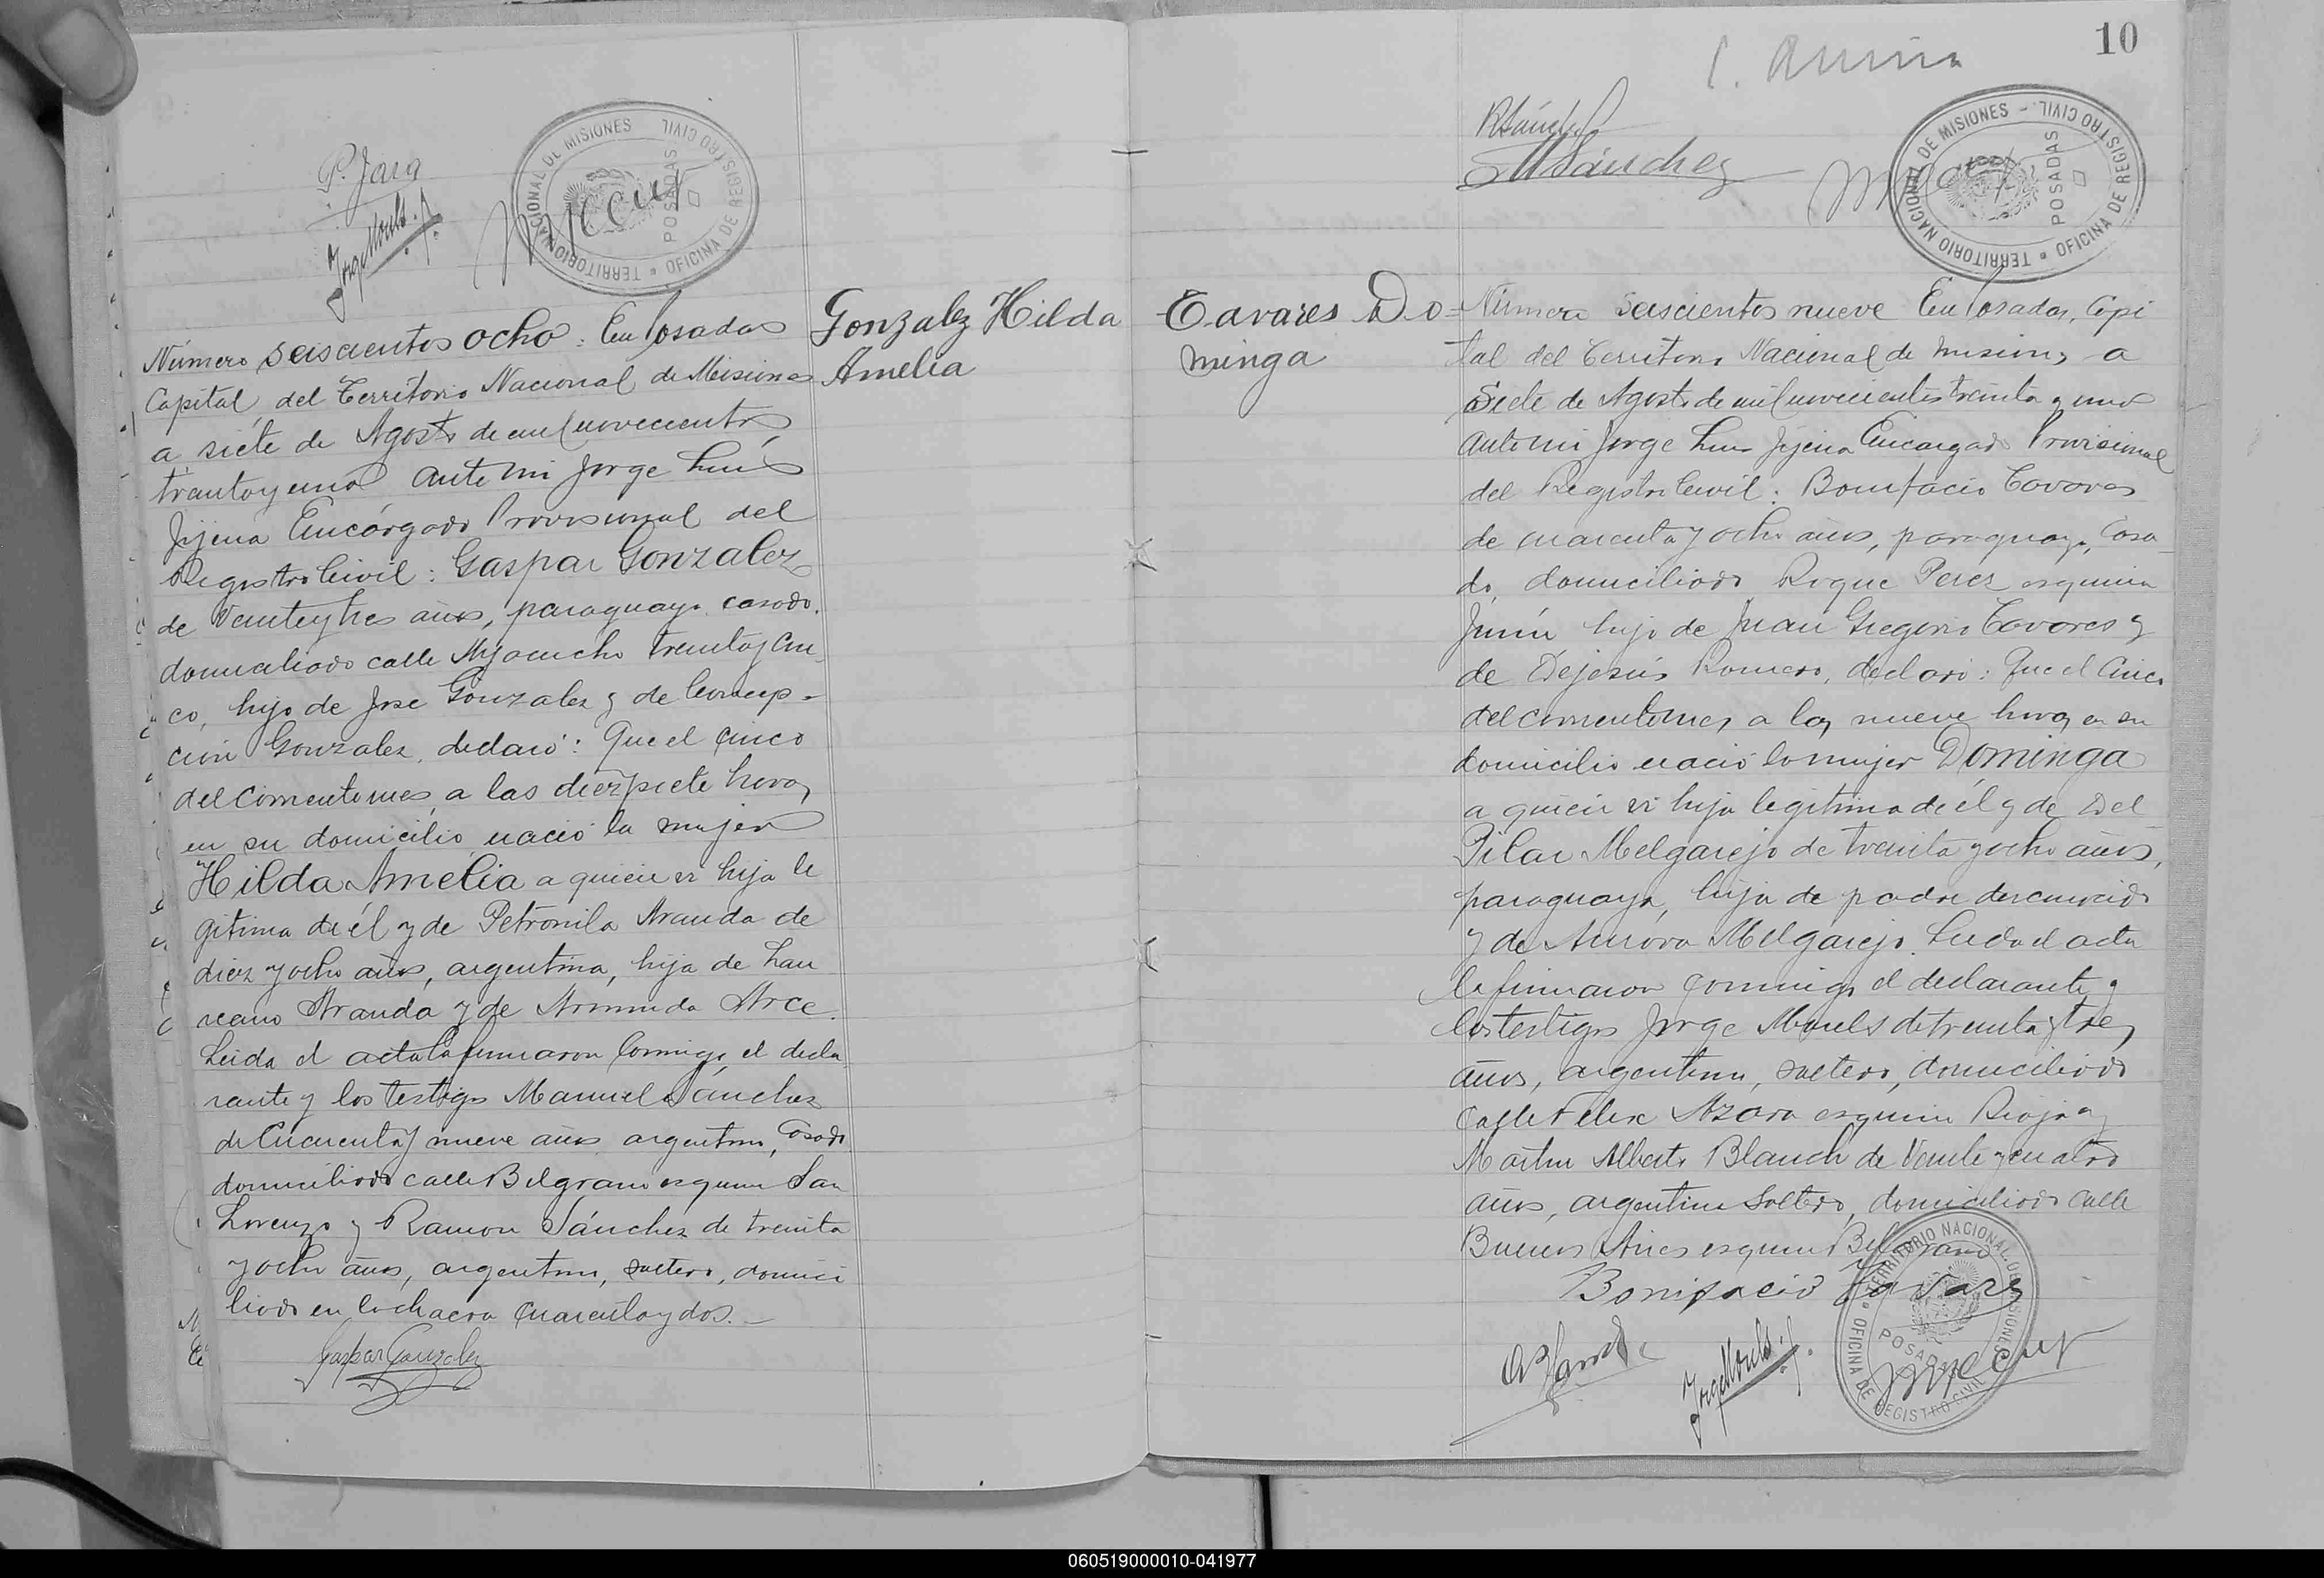 P. Jara
Jorge Mouls
TERRITORIO NACIONAL DE MISIONES
OFICINA DE REGISTRO CIVIL
POSADAS
Gonzalez Hilda
Amelia
Número seiscientos ocho: En Posadas
Capital del Territorio Nacional de Misiones
a siete de Agosto de mil novecientos
treinta y uno ante mi Jorge Luis
Jijena Encargado Provisional del
Registro Civil: Gaspar Gonzalez
de veinte y tres años, paraguayo casado.
domiciliado calle Ayacucho treinta y cin
co, hijo de Jose Gonzalez y de Concep-
ción Gonzalez, declaró: Que el cinco
del corriente mes a las diez y siete horas
en su domicilio nació la mujer
Hilda Amelia a quien vi hija le
gitima de él y de Petronila Aranda de
diez y ocho años, argentina, hija de Lau
reano Aranda y de Arminda Arce.
Leida el acta la firmaron conmigo el decla
rante y los testigos Manuel Sánchez
de cincuenta y nueve años argentino, casado
domiciliado calle Belgrano esquina San
Lorenzo y Ramon Sánchez de treinta
y ocho años, argentino, soltero, domici
liado en la chacra cuarenta y dos.—
Gaspar Gonzalez
10
RSánchez
MSánchez
TERRITORIO NACIONAL DE MISIONES -
OFICINA DE REGISTRO CIVIL
POSADAS
Tavares Do=
minga
Número seiscientos nueve En Posadas, Capi
tal del Territorio Nacional de Misiones a
siete de Agosto de mil novecientos treinta y uno
ante mi Jorge Luis Jijena Encargado Provisional
del Registro Civil: Bonifacio Tavares
de cuarenta y ocho años, paraguayo, casa
do, domiciliado Roque Perez esquina
Junín hijo de Juan Gregorio Tavares y
de Dejesús Romero, declaró: Que el cinco
del corriente mes a las nueve horas en su
domicilio nació la mujer Dominga
a quien vi hija legitima de él y de Del
Pilar Melgarejo de treinta y ocho años,
paraguaya, hija de padre desconocido
y de Aurora Melgarejo. Leida el acta
la firmaron conmigo el declarante y
los testigos Jorge Mouls de treinta y tres
años, argentino, soltero, domiciliado
calle Felix Azara esquina Rioja y
Martin Alberto Blanch de veinte y cuatro
años, argentino soltero, domiciliado calle
Buenos Aires esquina Belgrano
Bonifacio Tavares
Jorge Mouls
TERRITORIO NACIONAL DE MISIONES
OFICINA DE REGISTRO CIVIL
POSADAS
060519000010-041977